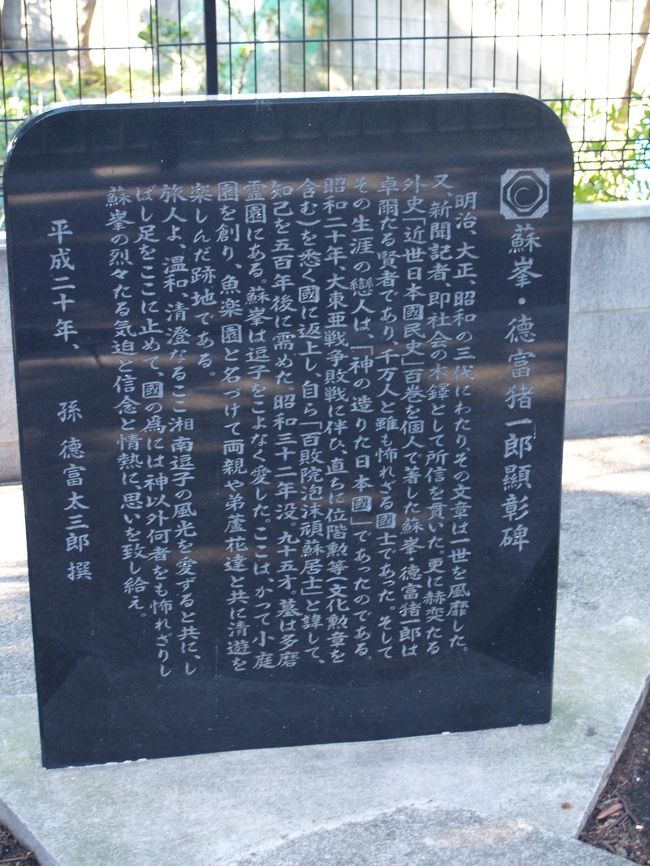 蘇峯・德富猪一郎顯彰碑
明治、大正、昭和の三代にわたりその文章は一世を風靡した。
又新聞記者、即社会の木鐸として所信を貫いた。更に赫奕たる
外史「近世日本國民史」百巻を個人で著した蘇峯・德富猪一郎は
卓爾たる賢者であり、千万人と雖も怖れざる國士であった。そして
その生涯の戀人は、「神の造りた日本國」であったのである。
昭和二十年、大東亜戦争敗戦に伴ひ、直ちに位階勲等(文化勲章を
含む)を悉く國に返上し、自ら「百敗院泡沫頑蘇居士」と諱して、
知己を五百年後に需めた。昭和三十二年没。九十五才。墓は多磨
霊園にある。蘇峯は逗子をこよなく愛した。ここは、かつて小庭
園を創り、魚楽園と名づけて両親や弟蘆花達と共に清遊を
楽しんだ跡地である。
旅人よ、温和、清澄なるここ湘南逗子の風光を愛ずると共に、し
ばし足をここに止めて、國の為には神以外何者をも怖れざりし
蘇峯の烈々たる気迫と信念と情熱に、思いを致し給え。
平成二十年、 孫 德富太三郎 撰